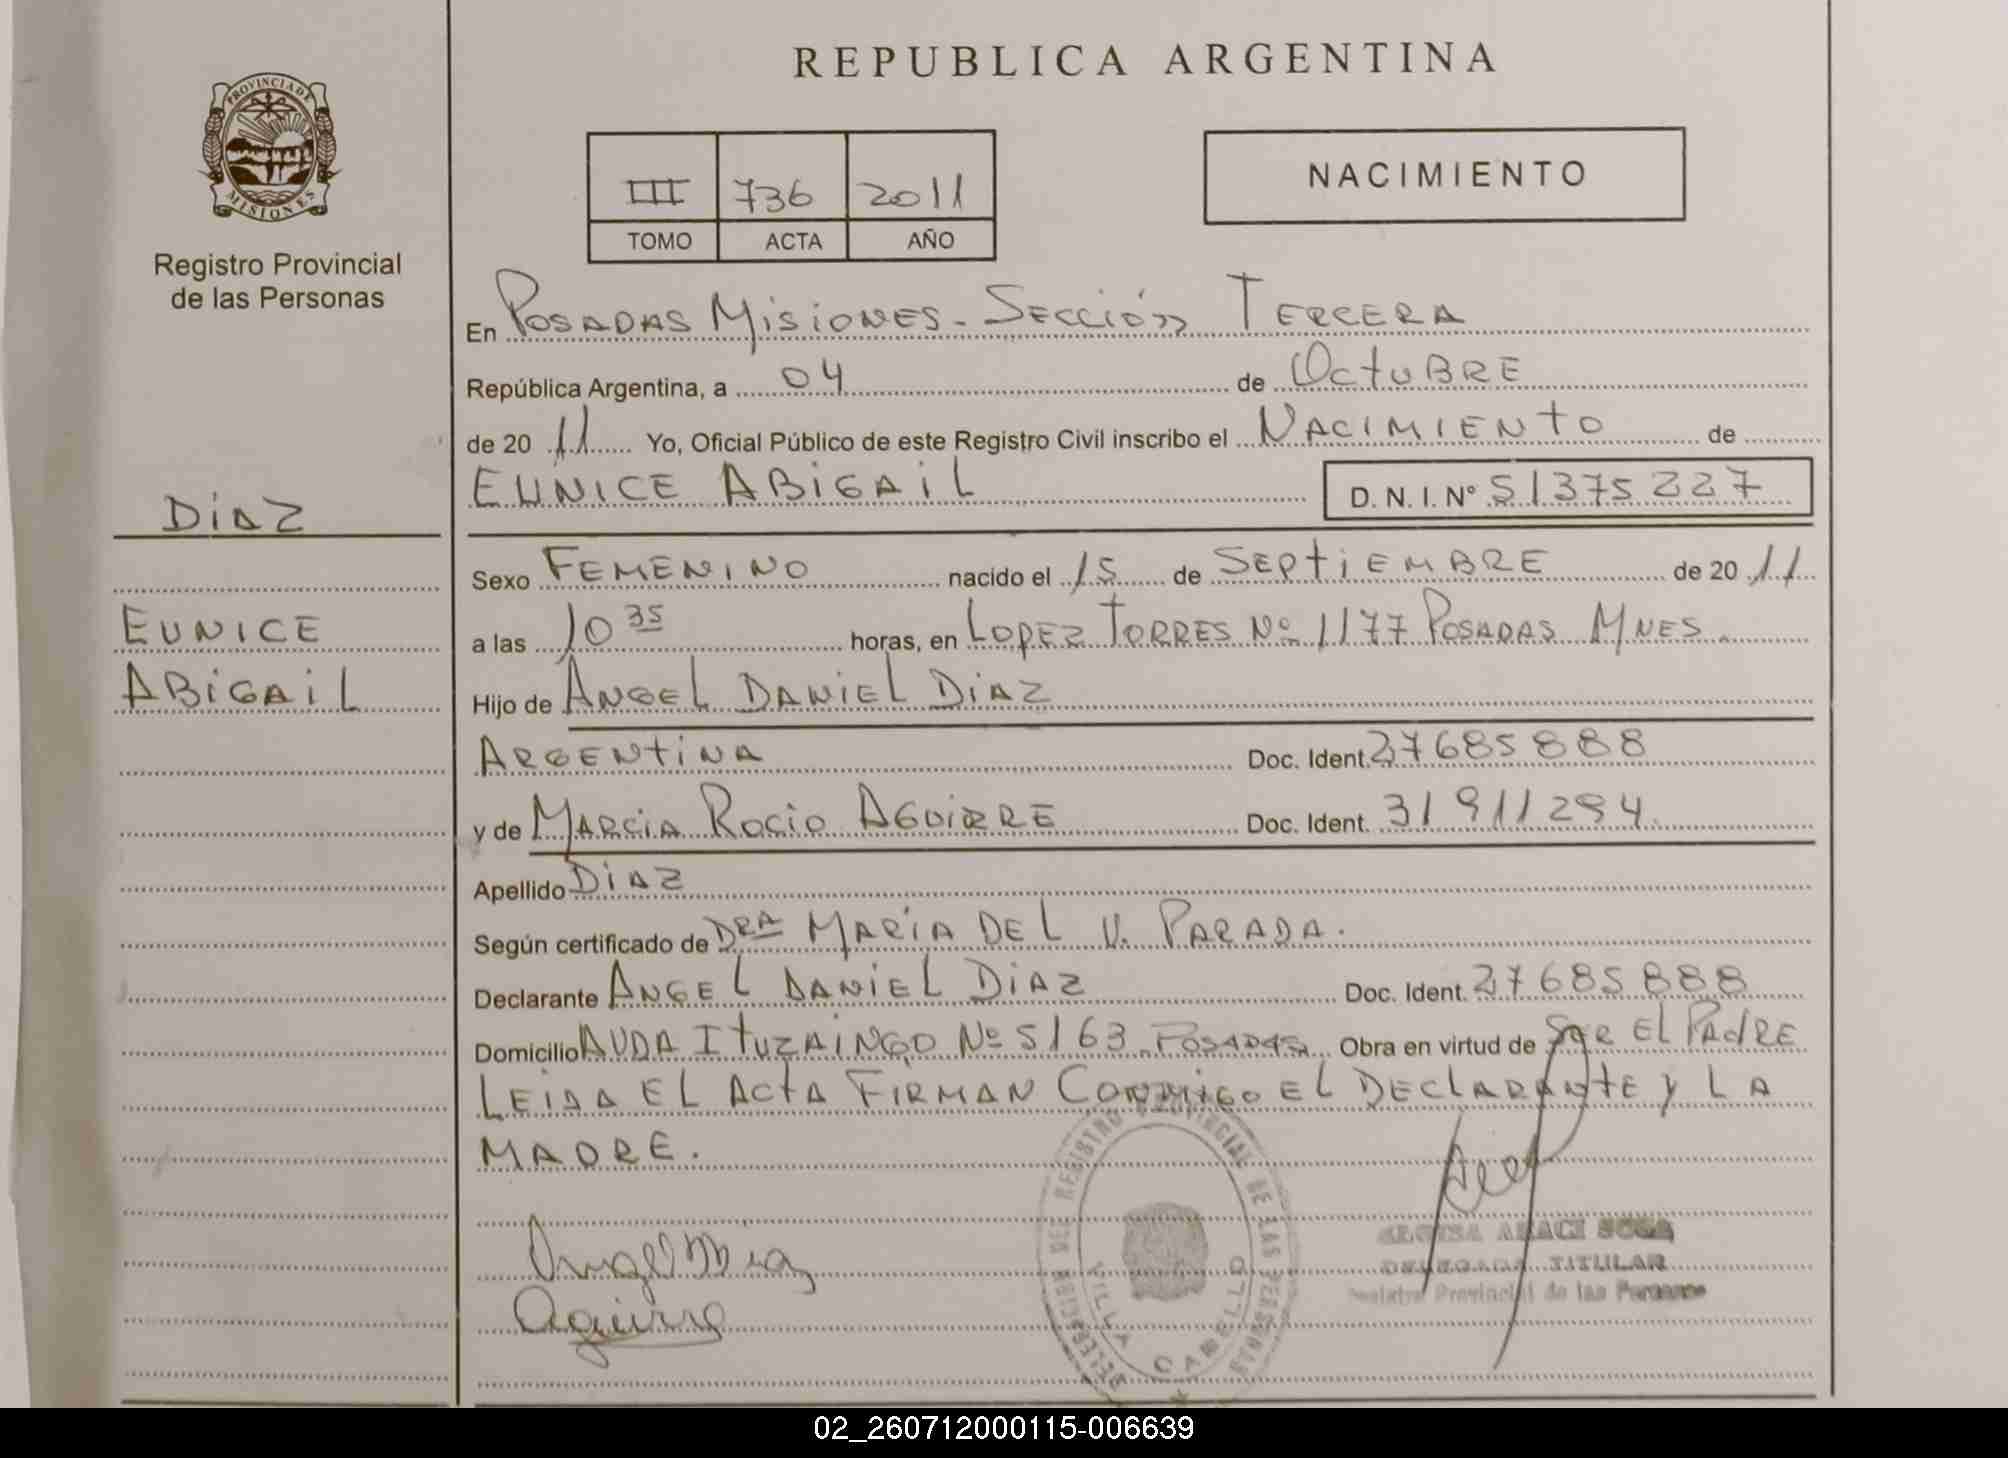 REPUBLICA ARGENTINA
PROVINCIA DE
MISIONES
Registro Provincial
de las Personas
III 736 2011
TOMO ACTA AÑO
NACIMIENTO
En POSADAS MISIONES - SECCIÓN TERCERA
República Argentina, a 04 de OCTUBRE
de 20 11 Yo, Oficial Público de este Registro Civil inscribo el NACIMIENTO de
EUNICE ABIGAIL D. N. I. Nº 51375227
DIAZ
EUNICE
ABIGAIL
Sexo FEMENINO nacido el 15 de SEPTIEMBRE de 20 11
a las 10 35 horas, en LOPEZ TORRES Nº 1177 POSADAS MNES.
Hijo de ANGEL DANIEL DIAZ
ARGENTINA Doc. Ident. 27685888
y de MARCIA ROCIO AGUIRRE Doc. Ident. 31911294
Apellido DIAZ
Según certificado de DRA MARÍA DEL V. PARADA.
Declarante ANGEL DANIEL DIAZ Doc. Ident. 27685888
Domicilio AVDA ITUZAINGO Nº 5163 POSADAS Obra en virtud de SER EL PADRE
LEIDA EL ACTA FIRMAN CONMIGO EL DECLARANTE Y LA
MADRE.
Angel Diaz
Aguirre
DELEGACION DEL REGISTRO PROVINCIAL DE LAS PERSONAS
VILLA CABELLO
ARACI SOSA
DELEGADA TITULAR
Registro Provincial de las Personas
02_260712000115-006639